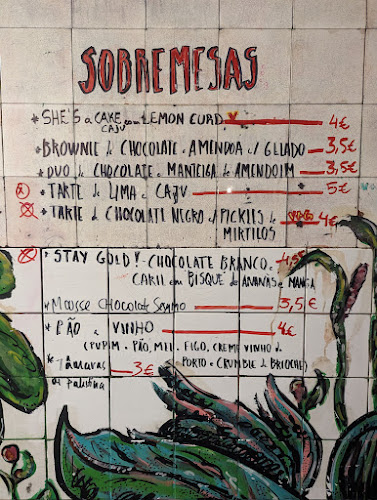 SOBREMESAS
* SHE'S a CAKE com LEMON CURD 4€
CAJU
* BROWNIE de CHOCOLATE e AMENDOA c/ GELADO 3,5€
* DUO de CHOCOLATE e MANTEIGA de AMENDOIM 3,5€
* TARTE de LIMA e CAJU 5€
* TARTE de CHOCOLATE NEGRO c/ PICKLES de 4€
MIRTILOS
* STAY GOLD! - CHOCOLATE BRANCO e
CARIL com BISQUE de ANANÁS e MANGA
* Mousse Chocolate 3,5€
* PÃO e VINHO 4€
(PUPIM. PÃO, MEL, FIGO, CREME VINHO do
PORTO e CRUMBLE de BRIOCHE)
* Tâmaras 3€
da Palestina